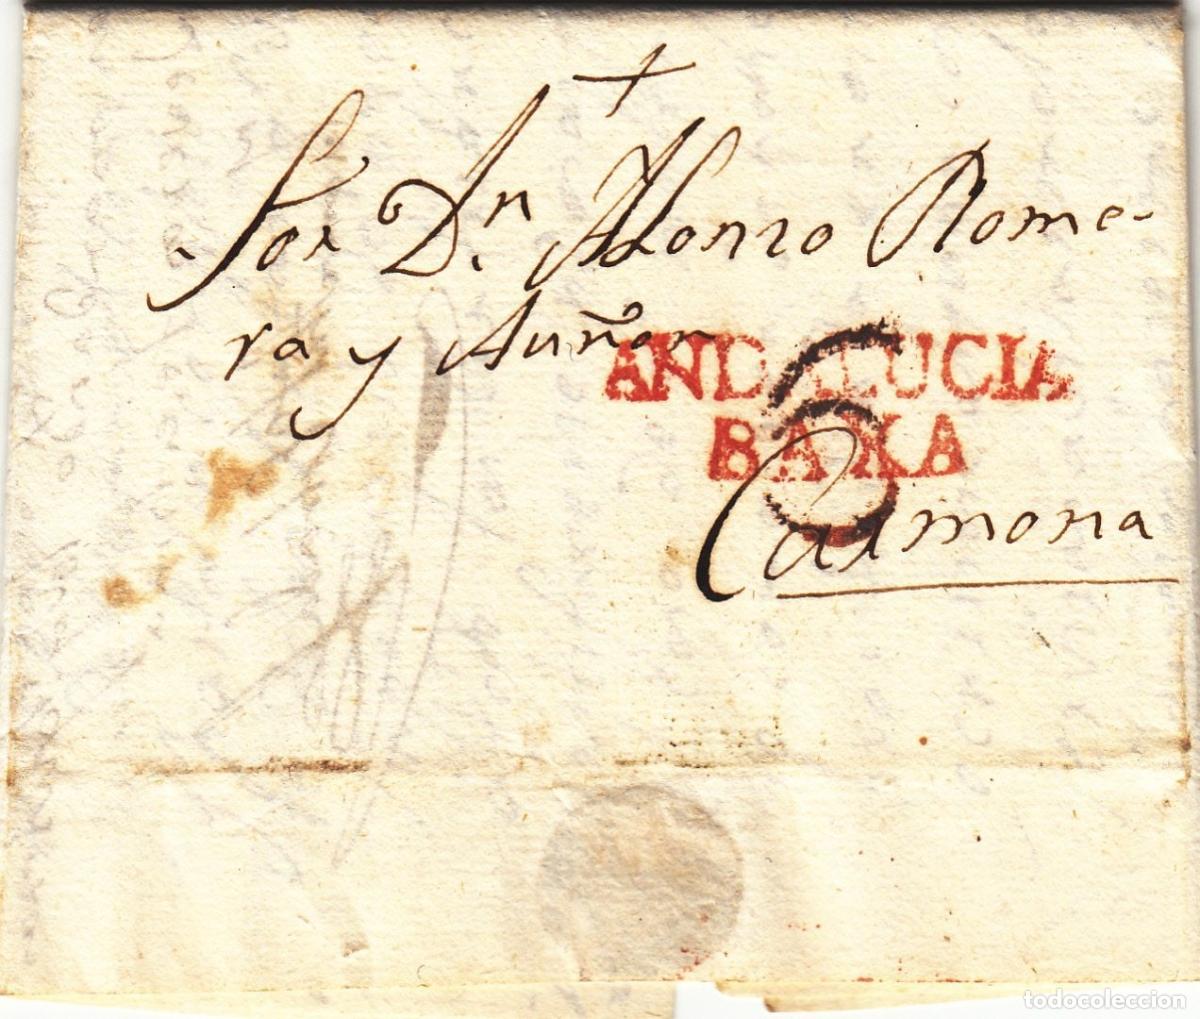 +
Sor Dn. Alonso Rome-
ra y Auñon
ANDALUCIA
BAXA
6
Carmona
todocoleccion